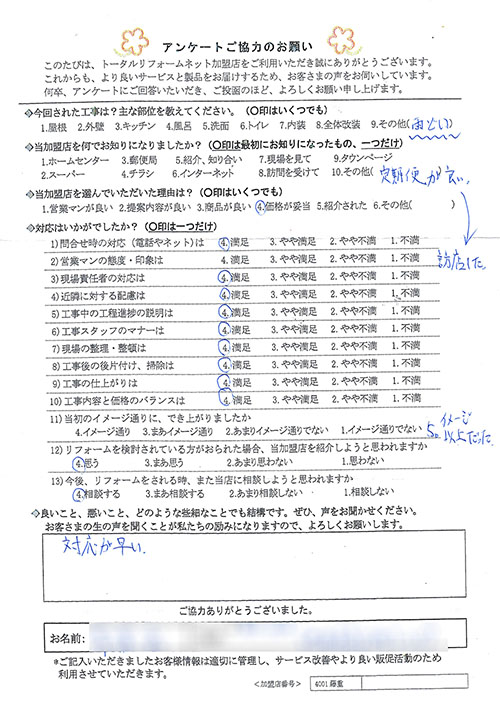 アンケートご協力のお願い
このたびは、トータルリフォームネット加盟店をご利用いただき誠にありがとうございます。
これからも、より良いサービスと製品をお届けするため、お客さまの声をお伺いしています。
何卒、アンケートにご回答いただき、ご投函のほど、よろしくお願い申し上げます。
◇今回された工事は？主な部位を教えてください。（〇印はいくつでも）
1.屋根 2.外壁 3.キッチン 4.風呂 5.洗面 6.トイレ 7.内装 8.全体改装 9.その他(雨とい)
◇当加盟店を何でお知りになりましたか？（〇印は最初にお知りになったもの、一つだけ）
1.ホームセンター 3.郵便局 5.紹介、知り合い 7.現場を見て 9.タウンページ
2.スーパー 4.チラシ 6.インターネット 8.訪問を受けて 10.その他(定期便が良い。
◇当加盟店を選んでいただいた理由は？（〇印はいくつでも）
1.営業マンが良い 2.提案内容が良い 3.商品が良い 4.価格が妥当 5.紹介された 6.その他( )
訪店した
◇対応はいかがでしたか？（〇印は一つだけ）
1)問合せ時の対応（電話やネット）は 4.満足 3.やや満足 2.やや不満 1.不満
2)営業マンの態度・印象は 4.満足 3.やや満足 2.やや不満 1.不満
3)現場責任者の対応は 4.満足 3.やや満足 2.やや不満 1.不満
4)近隣に対する配慮は 4.満足 3.やや満足 2.やや不満 1.不満
5)工事中の工程進捗の説明は 4.満足 3.やや満足 2.やや不満 1.不満
6)工事スタッフのマナーは 4.満足 3.やや満足 2.やや不満 1.不満
7)現場の整理・整頓は 4.満足 3.やや満足 2.やや不満 1.不満
8)工事後の後片付け、掃除は 4.満足 3.やや満足 2.やや不満 1.不満
9)工事の仕上がりは 4.満足 3.やや満足 2.やや不満 1.不満
10)工事内容と価格のバランスは 4.満足 3.やや満足 2.やや不満 1.不満
11)当初のイメージ通りに、でき上がりましたか
4.イメージ通り 3.まあイメージ通り 2.あまりイメージ通りでない 1.イメージ通りでない
5.イメージ以上だった
12)リフォームを検討されている方がおられた場合、当加盟店を紹介しようと思われますか
4.思う 3.まあ思う 2.あまり思わない 1.思わない
13)今後、リフォームをされる時、また当店に相談しようと思われますか
4.相談する 3.まあ相談する 2.あまり相談しない 1.相談しない
◇良いこと、悪いこと、どのような些細なことでも結構です。ぜひ、声をお聞かせください。
お客さまの生の声を聞くことが私たちの励みになりますので、よろしくお願いします。
対応が早い。
ご協力ありがとうございました。
お名前:
*ご記入いただきましたお客様情報は適切に管理し、サービス改善やより良い販促活動のため
利用させていただきます。
<加盟店番号> 4001藤重